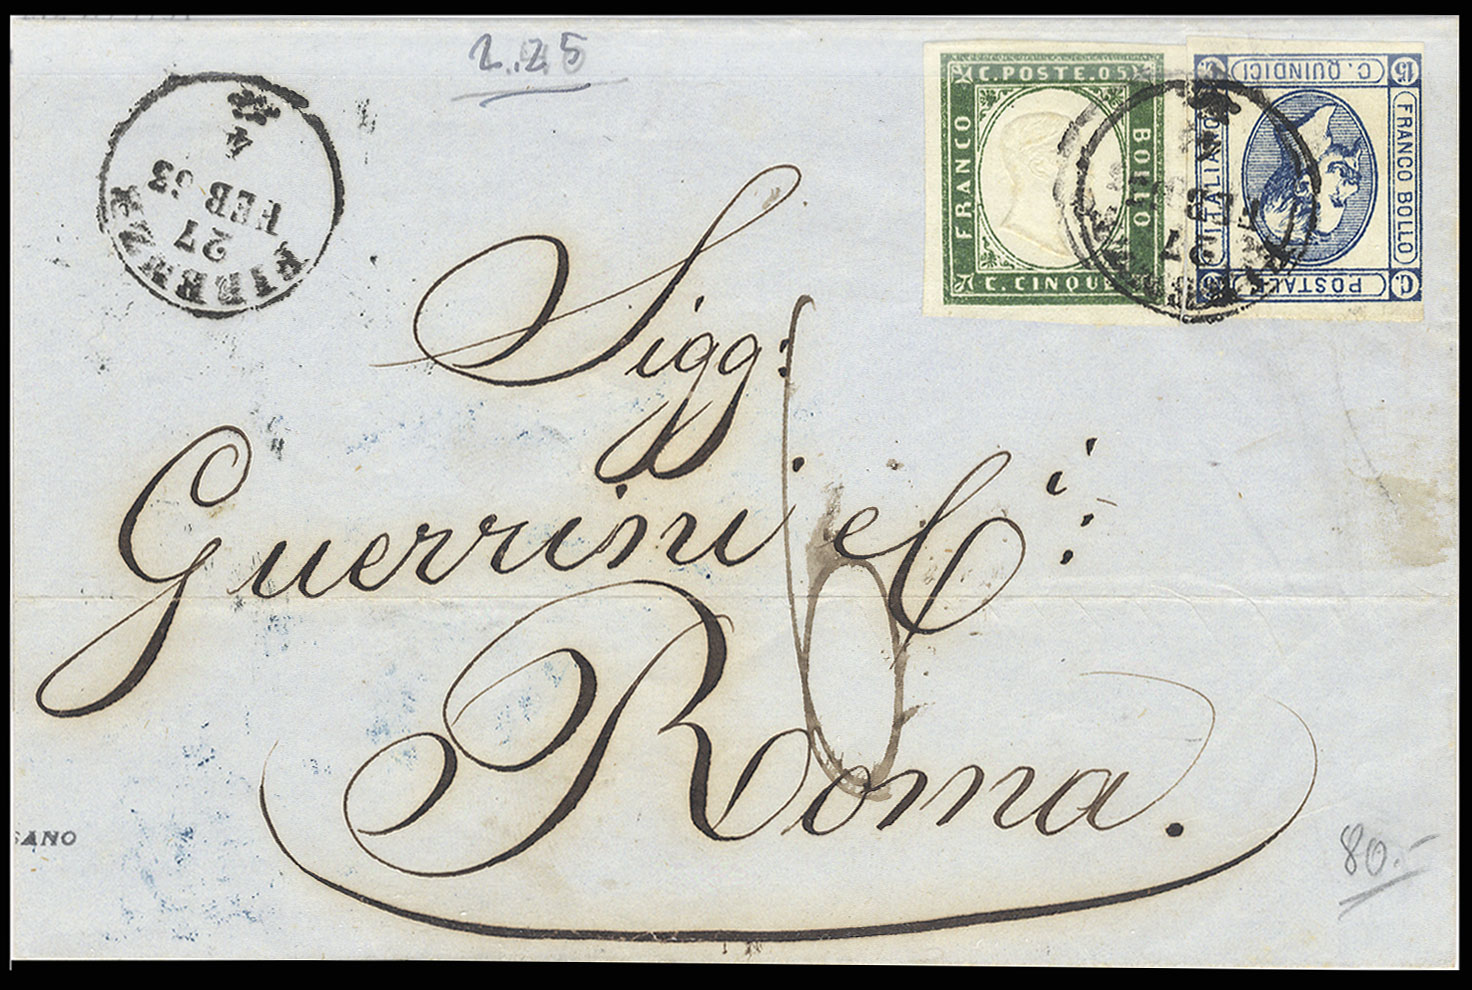 2.25
C. POSTE. 05
FRANCO
BOLLO
C. CINQUE
15
C. QUINDICI
FRANCO BOLLO
ITALIANO
POSTALE
C.
FIRENZE
27
FEB 63
4
Sigg:
Guerrini e C.i
Roma.
SANO
80.-